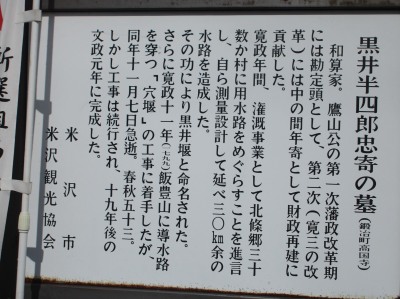 黒井半四郎忠寄の墓(鍛治町高国寺)
和算家。鷹山公の第一次藩政改革期
には勘定頭として、第二次(寛三の改
革)には中の間年寄として財政再建に
貢献した。
寛政年間、潅漑事業として北條郷三十
数か村に用水路をめぐらすことを進言
し、自ら測量設計して延べ三〇㎞余の
水路を造成した。
その功により黒井堰と命名された。
さらに寛政十一年(一七九九)飯豊山に導水路
を穿つ「穴堰」の工事に着手したが、
同年十一月七日急逝。春秋五十三。
しかし工事は続行され、十九年後の
文政元年に完成した。
米沢市
米沢観光協会
新選組